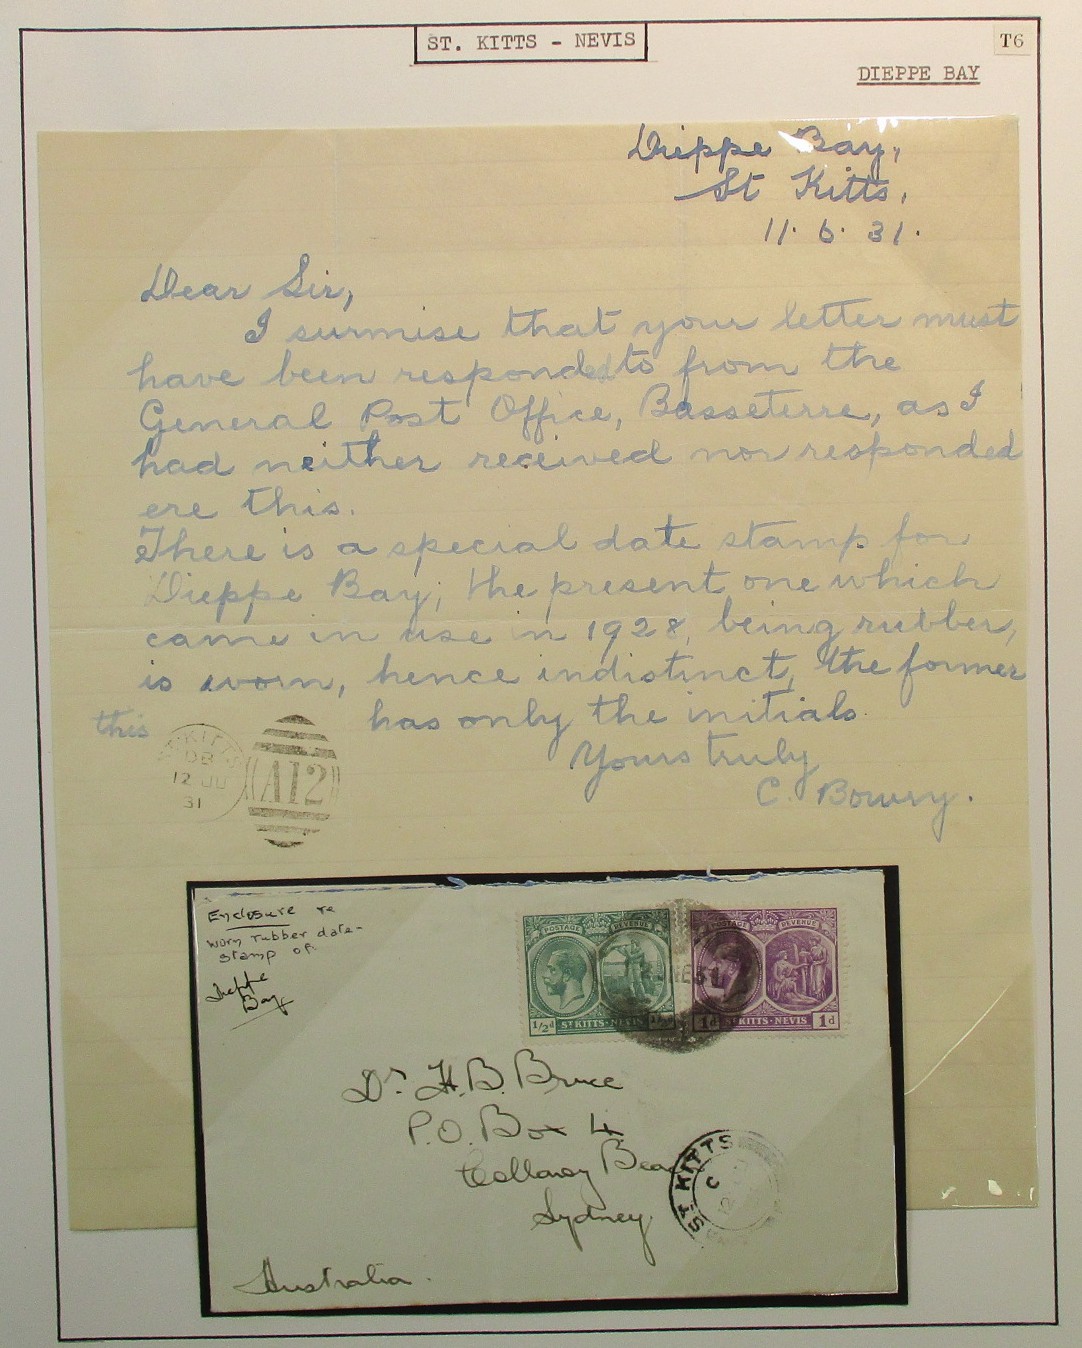 ST. KITTS - NEVIS
T6
DIEPPE BAY
Dieppe Bay,
St Kitts.
11. 6. 31.
Dear Sir,
I surmise that your letter must
have been responded to from the
General Post Office, Basseterre, as I
had neither received nor responded
ere this.
There is a special date stamp for
Dieppe Bay; the present one which
came in use in 1928, being rubber,
is worn, hence indistinct, the former
this has only the initials.
Yours truly
C. Bowry.
ST KITTS
DB
12 JU
31
A12
Enclosure re
worn rubber date-
stamp of
Dieppe
Bay
POSTAGE REVENUE
POSTAGE REVENUE
1/2d ST KITTS-NEVIS
1d ST KITTS-NEVIS 1d
Dr H. B. Bruce
P.O. Box 4
Collaroy Beach
Sydney
Australia.
ST KITTS
C
12